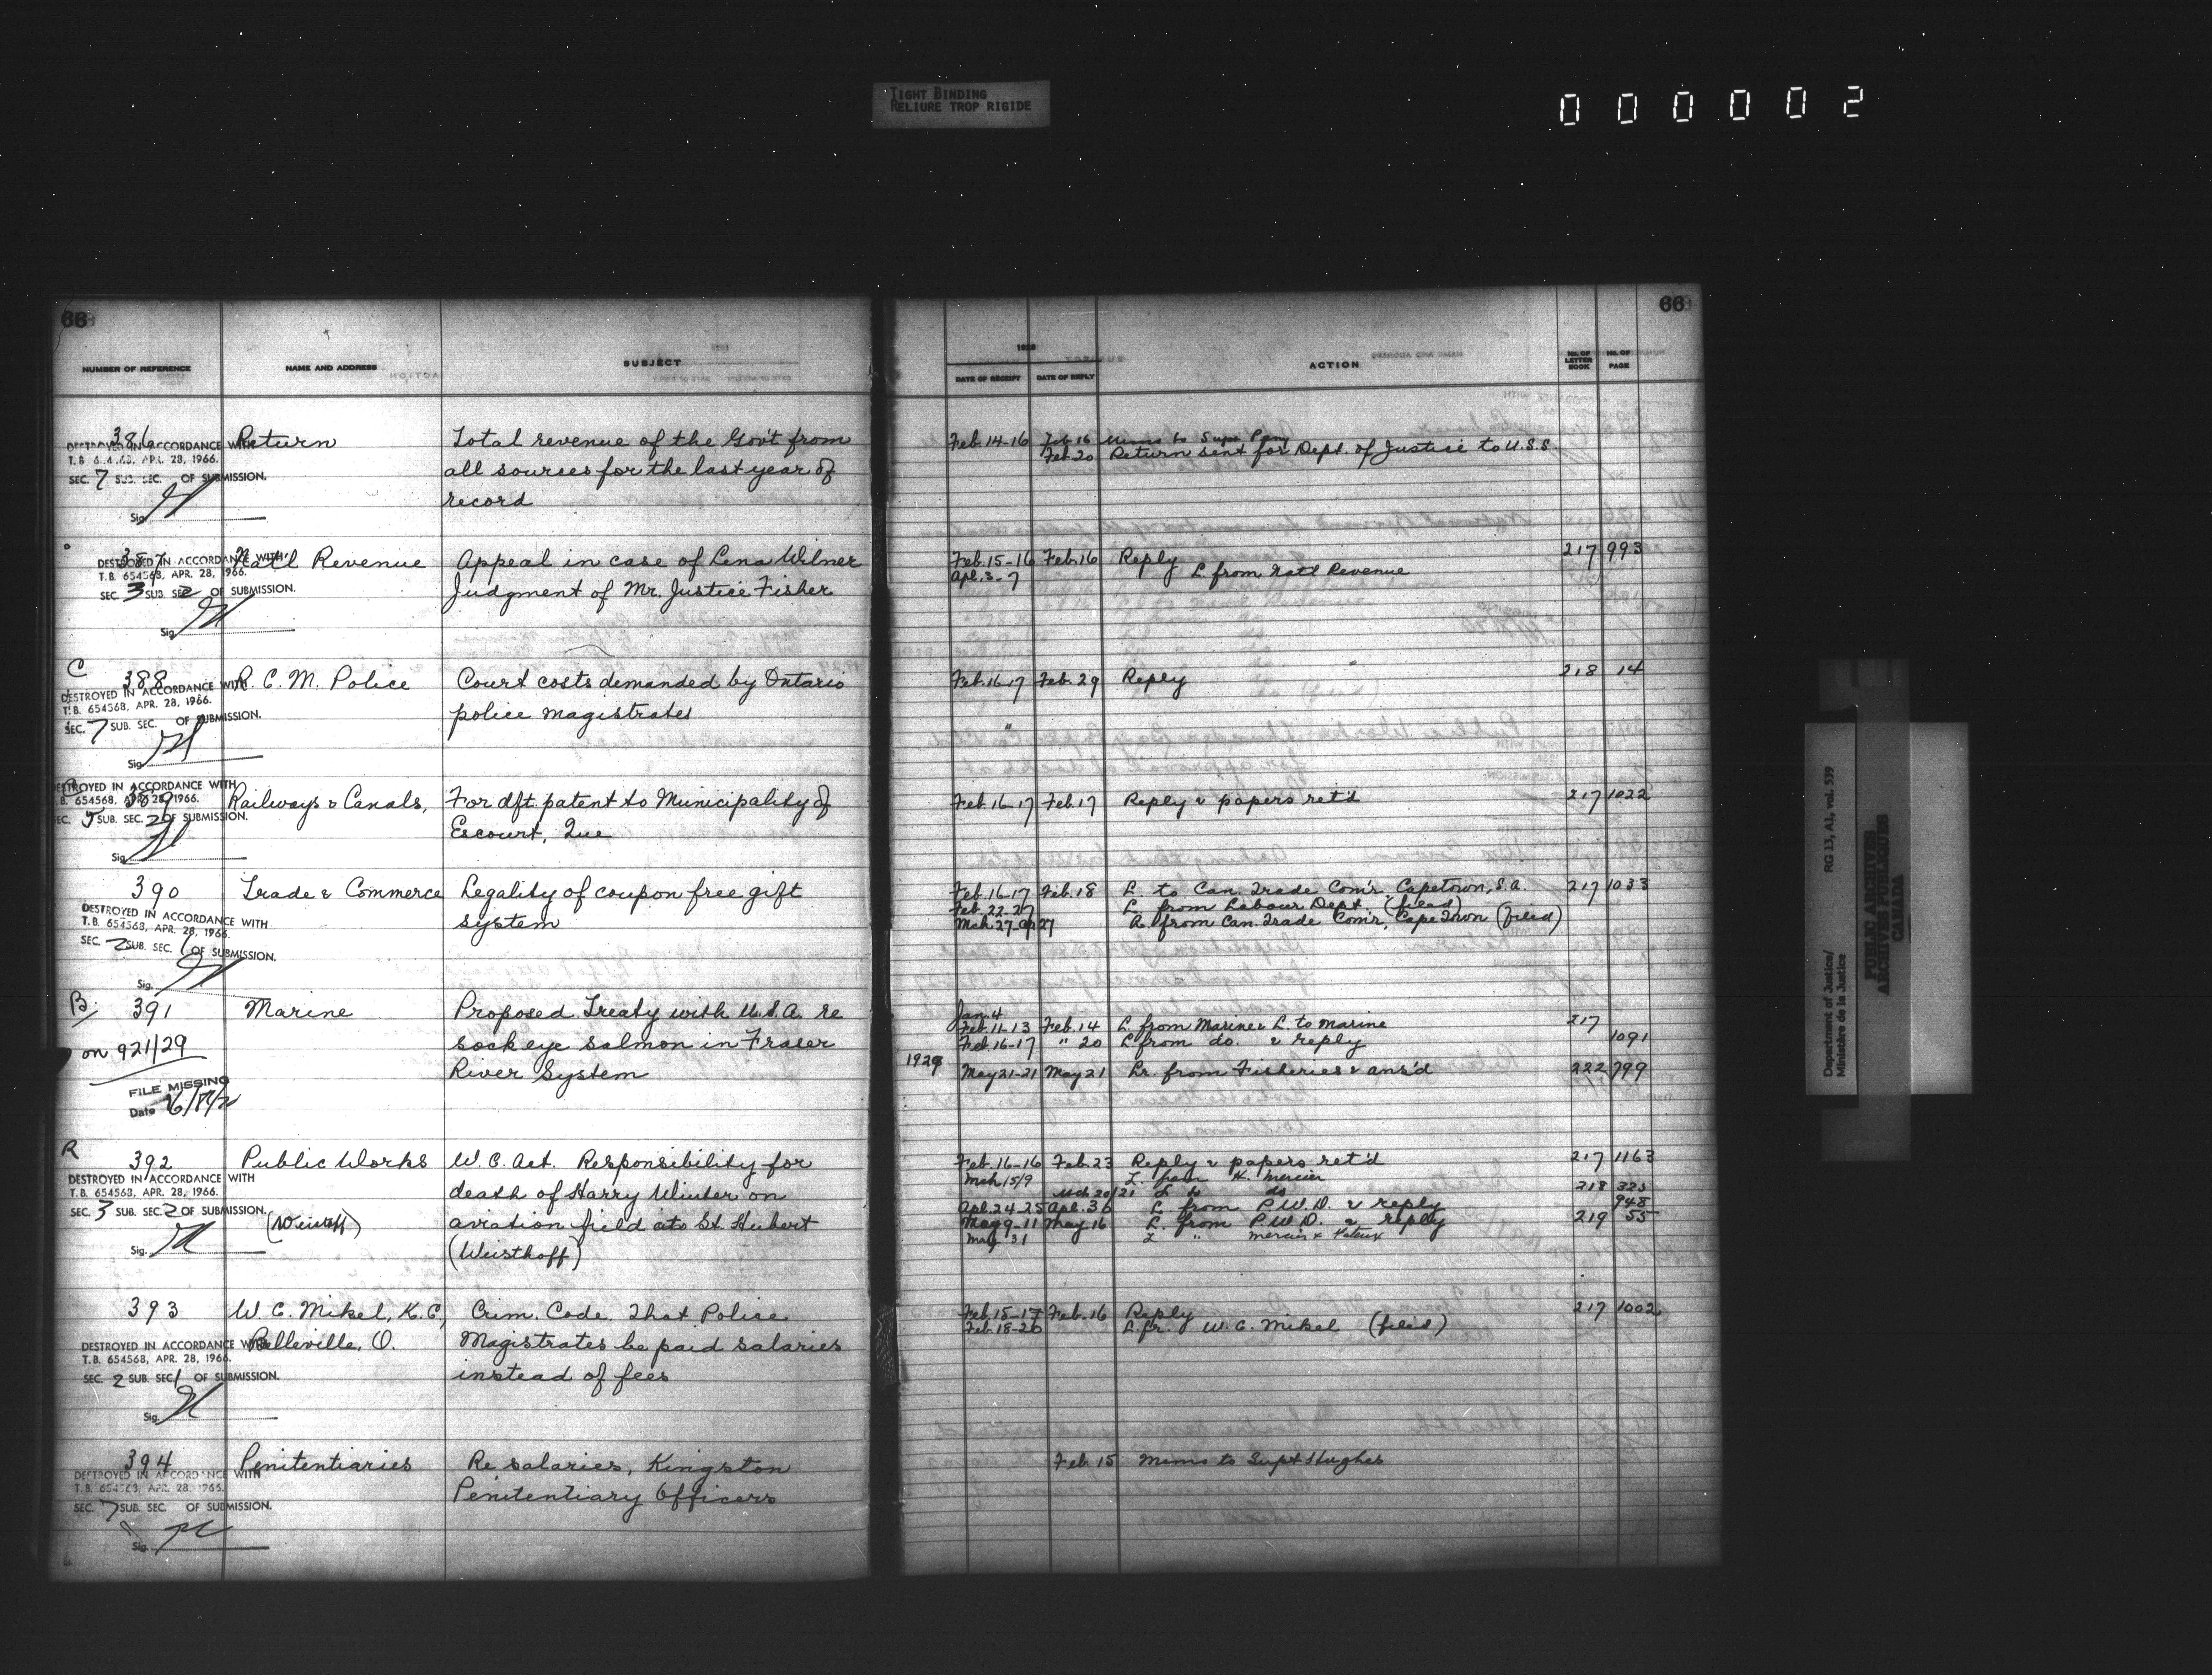 TIGHT BINDING
RELIURE TROP RIGIDE
0 0 0 0 0 2
66
NUMBER OF REFERENCE
NAME AND ADDRESS
SUBJECT
386
Return
Total revenue of the Gov't from
all sources for the last year of
record
DESTROYED IN ACCORDANCE WITH
T.B. 654568, APR. 28, 1966.
SEC. 7 SUB. SEC. OF SUBMISSION.
Sig.
387
Nat'l Revenue
Appeal in case of Lena Wilner
Judgment of Mr. Justice Fisher
DESTROYED IN ACCORDANCE WITH
T.B. 654568, APR. 28, 1966.
SEC. 3 SUB. SEC. 2 OF SUBMISSION.
Sig.
C
388
R. C. M. Police
Court costs demanded by Ontario
police magistrates
DESTROYED IN ACCORDANCE WITH
T.B. 654568, APR. 28, 1966.
SEC. 7 SUB. SEC. OF SUBMISSION.
Sig.
389
Railways & Canals,
For dft. patent to Municipality of
Escourt, Que
DESTROYED IN ACCORDANCE WITH
T.B. 654568, APR. 28, 1966.
SEC. 5 SUB. SEC. 2 OF SUBMISSION.
Sig.
390
Trade & Commerce
Legality of coupon free gift
system
DESTROYED IN ACCORDANCE WITH
T.B. 654568, APR. 28, 1966.
SEC. 2 SUB. SEC. 1 OF SUBMISSION.
Sig.
B
391
Marine
Proposed Treaty with U.S.A. re
sockeye salmon in Fraser
River System
on 921/29
FILE MISSING
Date
R
392
Public Works
W. C. Act. Responsibility for
death of Harry Winter on
aviation field at St. Hubert
(Weisthoff)
DESTROYED IN ACCORDANCE WITH
T.B. 654568, APR. 28, 1966.
SEC. 3 SUB. SEC. 2 OF SUBMISSION.
Sig.
393
W. C. Mikel, K.C,
Belleville, O.
Crim. Code. That Police
Magistrates be paid salaries
instead of fees
DESTROYED IN ACCORDANCE WITH
T.B. 654568, APR. 28, 1966.
SEC. 2 SUB. SEC. 1 OF SUBMISSION.
Sig.
394
Penitentiaries
Re salaries, Kingston
Penitentiary Officers
DESTROYED IN ACCORDANCE WITH
T.B. 654568, APR. 28, 1966.
SEC. 7 SUB. SEC. OF SUBMISSION.
Sig.
66
1928
DATE OF RECEIPT
DATE OF REPLY
ACTION
No. OF LETTER BOOK
No. OF PAGE
Feb. 14-16 Feb. 16 Memo to Supt
Feb. 20 Return sent for Dept. of Justice to U.S.S.
Feb. 15-16 Feb. 16 Reply 217 993
Apl. 3-7 L. from Nat'l Revenue
Feb. 16-17 Feb. 29 Reply 218 14
Feb. 16-17 Feb. 17 Reply & papers ret'd 217 1022
Feb. 16-17 Feb. 18 L. to Can. Trade Com'r, Capetown, S.A. 217 1033
Feb. 22-27 L. from Labour Dept. (filed)
Mch. 27-Ap 27 A. from Can. Trade Com'r, Cape Town (filed)
Jan. 4
Feb. 11-13 Feb. 14 L. from Marine & L. to Marine 217
Feb. 16-17 " 20 L. from do. & reply 1091
1929
May 21-21 May 21 Lr. from Fisheries & ans'd 222 799
Feb. 16-16 Feb. 23 Reply & papers ret'd 217 1163
Mch 15/9 L. from K. Mercier
Mch 20/21 L. to do 218 325
Apl. 24-25 Apl. 30 L. from P.W.D. & reply 948
May 9-11 May 16 L. from P.W.D. & reply 219 55
May 31 L " Mercier &
Feb. 15-17 Feb. 16 Reply 217 1002
Feb. 18-20 L. fr. W. C. Mikel (filed)
Feb. 15 Memo to Supt Hughes
Department of Justice/
Ministère de la Justice
RG 13, A1, vol. 539
PUBLIC ARCHIVES
ARCHIVES PUBLIQUES
CANADA